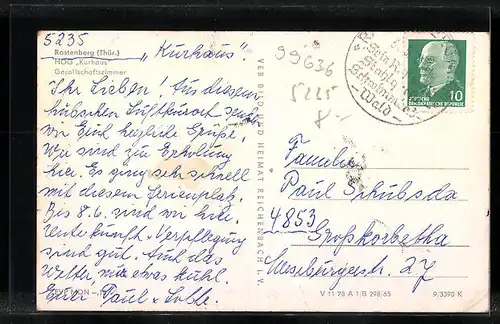 5235
Rastenberg (Thür.)
HOG „Kurhaus"
Gesellschaftszimmer
„Kurhaus".
Ihr Lieben! Aus diesem
hübschen Luftkurort senden
wir Euch herzliche Grüße.
Wir sind zur Erholung
hier. Es ging sehr schnell
mit diesem Ferienplatz.
Bis 8.6. sind wir hier.
Unterkunft u. Verpflegung
sind gut. Auch das
Wetter, nur etwas kühl.
Eure Paul u. Lotte.
VEB BILD UND HEIMAT REICHENBACH I. V.
99636
5225
8-
Wald
10
DEUTSCHE DEMOKRATISCHE REPUBLIK
Familie
Paul Schubsda
4853
Großkorbetha
Merseburgerstr. 27
V 11 28 A 1 B 298/65
9/3390 K